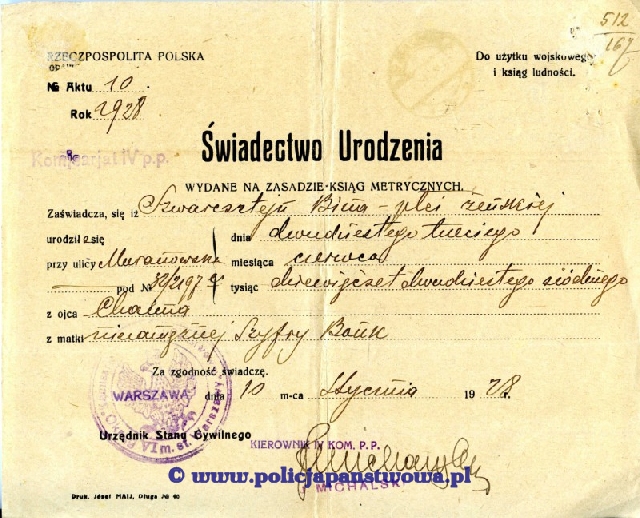 512
167
RZECZPOSPOLITA POLSKA
Do użytku wojskowego
i ksiąg ludności.
№ Aktu 10
Rok 1928
Komisarjat IV p.p.
Świadectwo Urodzenia
WYDANE NA ZASADZIE KSIĄG METRYCZNYCH.
Zaświadcza, się iż Szwarcsztejn Bina - płci żeńskiej
urodził a się dnia dwudziestego trzeciego
przy ulicy Muranowska miesiąca czerwca
pod № tysiąc dziewięćset dwudziestego siódmego
z ojca Chaima
z matki niezamężnej Szyfry Bonk
Za zgodność świadczę.
WARSZAWA dnia 10 m-ca Stycznia 1928 r.
Urzędnik Stanu Cywilnego
KIEROWNIK IV KOM. P. P.
MICHALSKI
© www.policjapanstwowa.pl
Druk. Józef MAIJ, Długa № 46